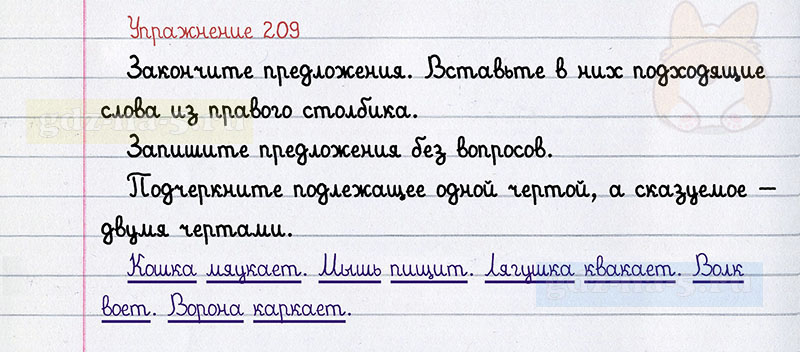 Упражнение 209
Закончите предложения. Вставьте в них подходящие
слова из правого столбика.
Запишите предложения без вопросов.
Подчеркните подлежащее одной чертой, а сказуемое –
двумя чертами.
Кошка мяукает. Мышь пищит. Лягушка квакает. Волк
воет. Ворона каркает.